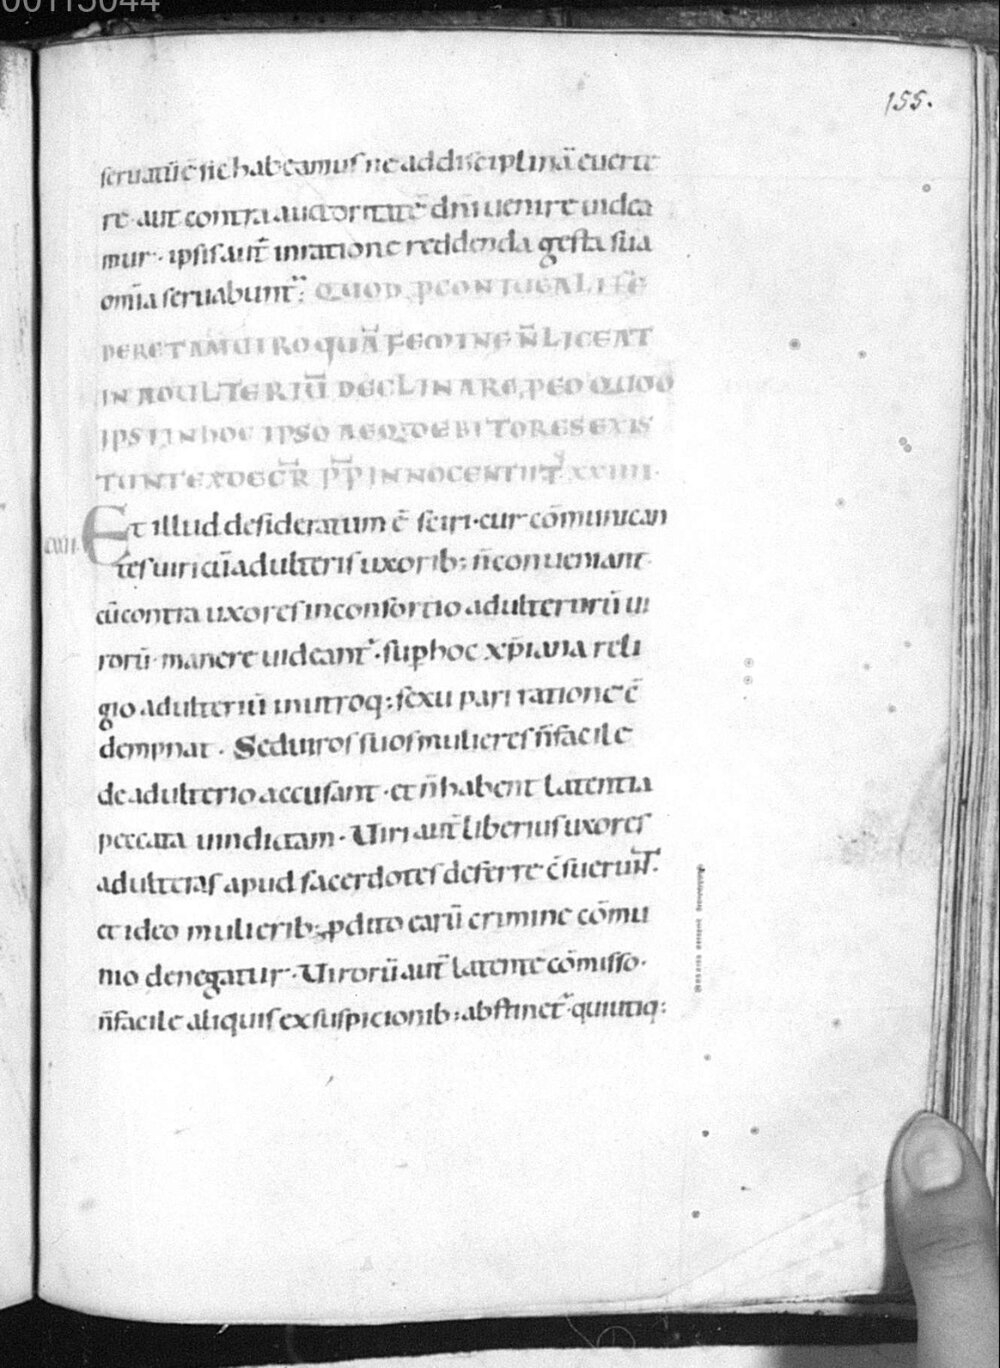 00115044
155.
seruatū ē sic habeamus ne ad disciplinā euerte
re aut contra auctoritatē dn̄i uenire uidea
mur· ipsis aut̄ inratione reddenda gesta sua
omīa seruabunt᷑: QUOD PCONIUGALI FE
DERE TAM UIRO QUĀ FEMINE N̄ LICEAT
IN ADULTERIŪ DECLINARE, PEO QUOD
IPSI IN HOC IPSO AEQ, DEBITORES EXIS
TUNT EX DECR̄ P̄P̄ INNOCENTII T̄ XXIIII·
CXII· Et illud desideratum ē sciri·cur cōmunican
tes uiri cū adulteris uxorib; n̄ conueniant·
cū contra uxores inconsortio adulterorū ui
rorū· manere uideant᷑·sup hoc xp̄iana reli
gio adulteriū inutroq; sexu pari ratione c̄
dempnat· Sed uiros suos mulieres n̄ facile
de adulterio accusant·et n̄ habent latentia
peccata uindictam· Uiri aut̄ liberius uxores
adulteras apud sacerdotes deferre c̄sueruNT·
et ideo mulierib; pdito earū crimine cōmu
nio denegatur· Uirorū aut̄ latente cōmisso·
n̄ facile aliquis ex suspicionib; abstinet᷑·qui utiq;